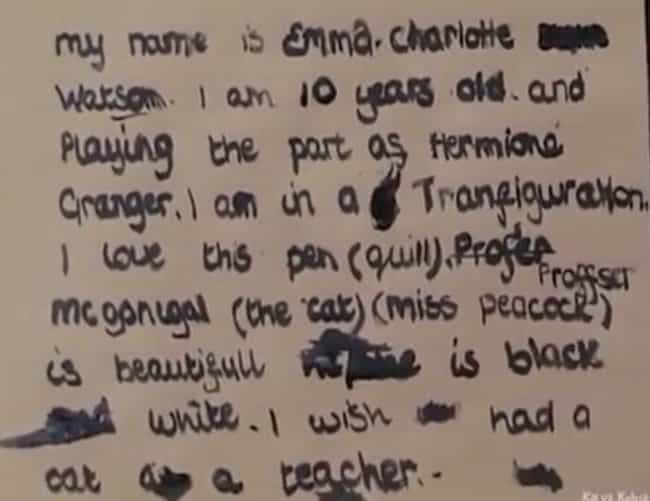 my name is Emma. Charlotte
Watson. I am 10 years old. and
Playing the part as Hermione
Granger. I am in a Tranfiguration.
I love this pen (quill). Profer
Proffser
mcgonigal (the cat) (miss peacock)
is beautifull is black
white. I wish had a
cat as a teacher.